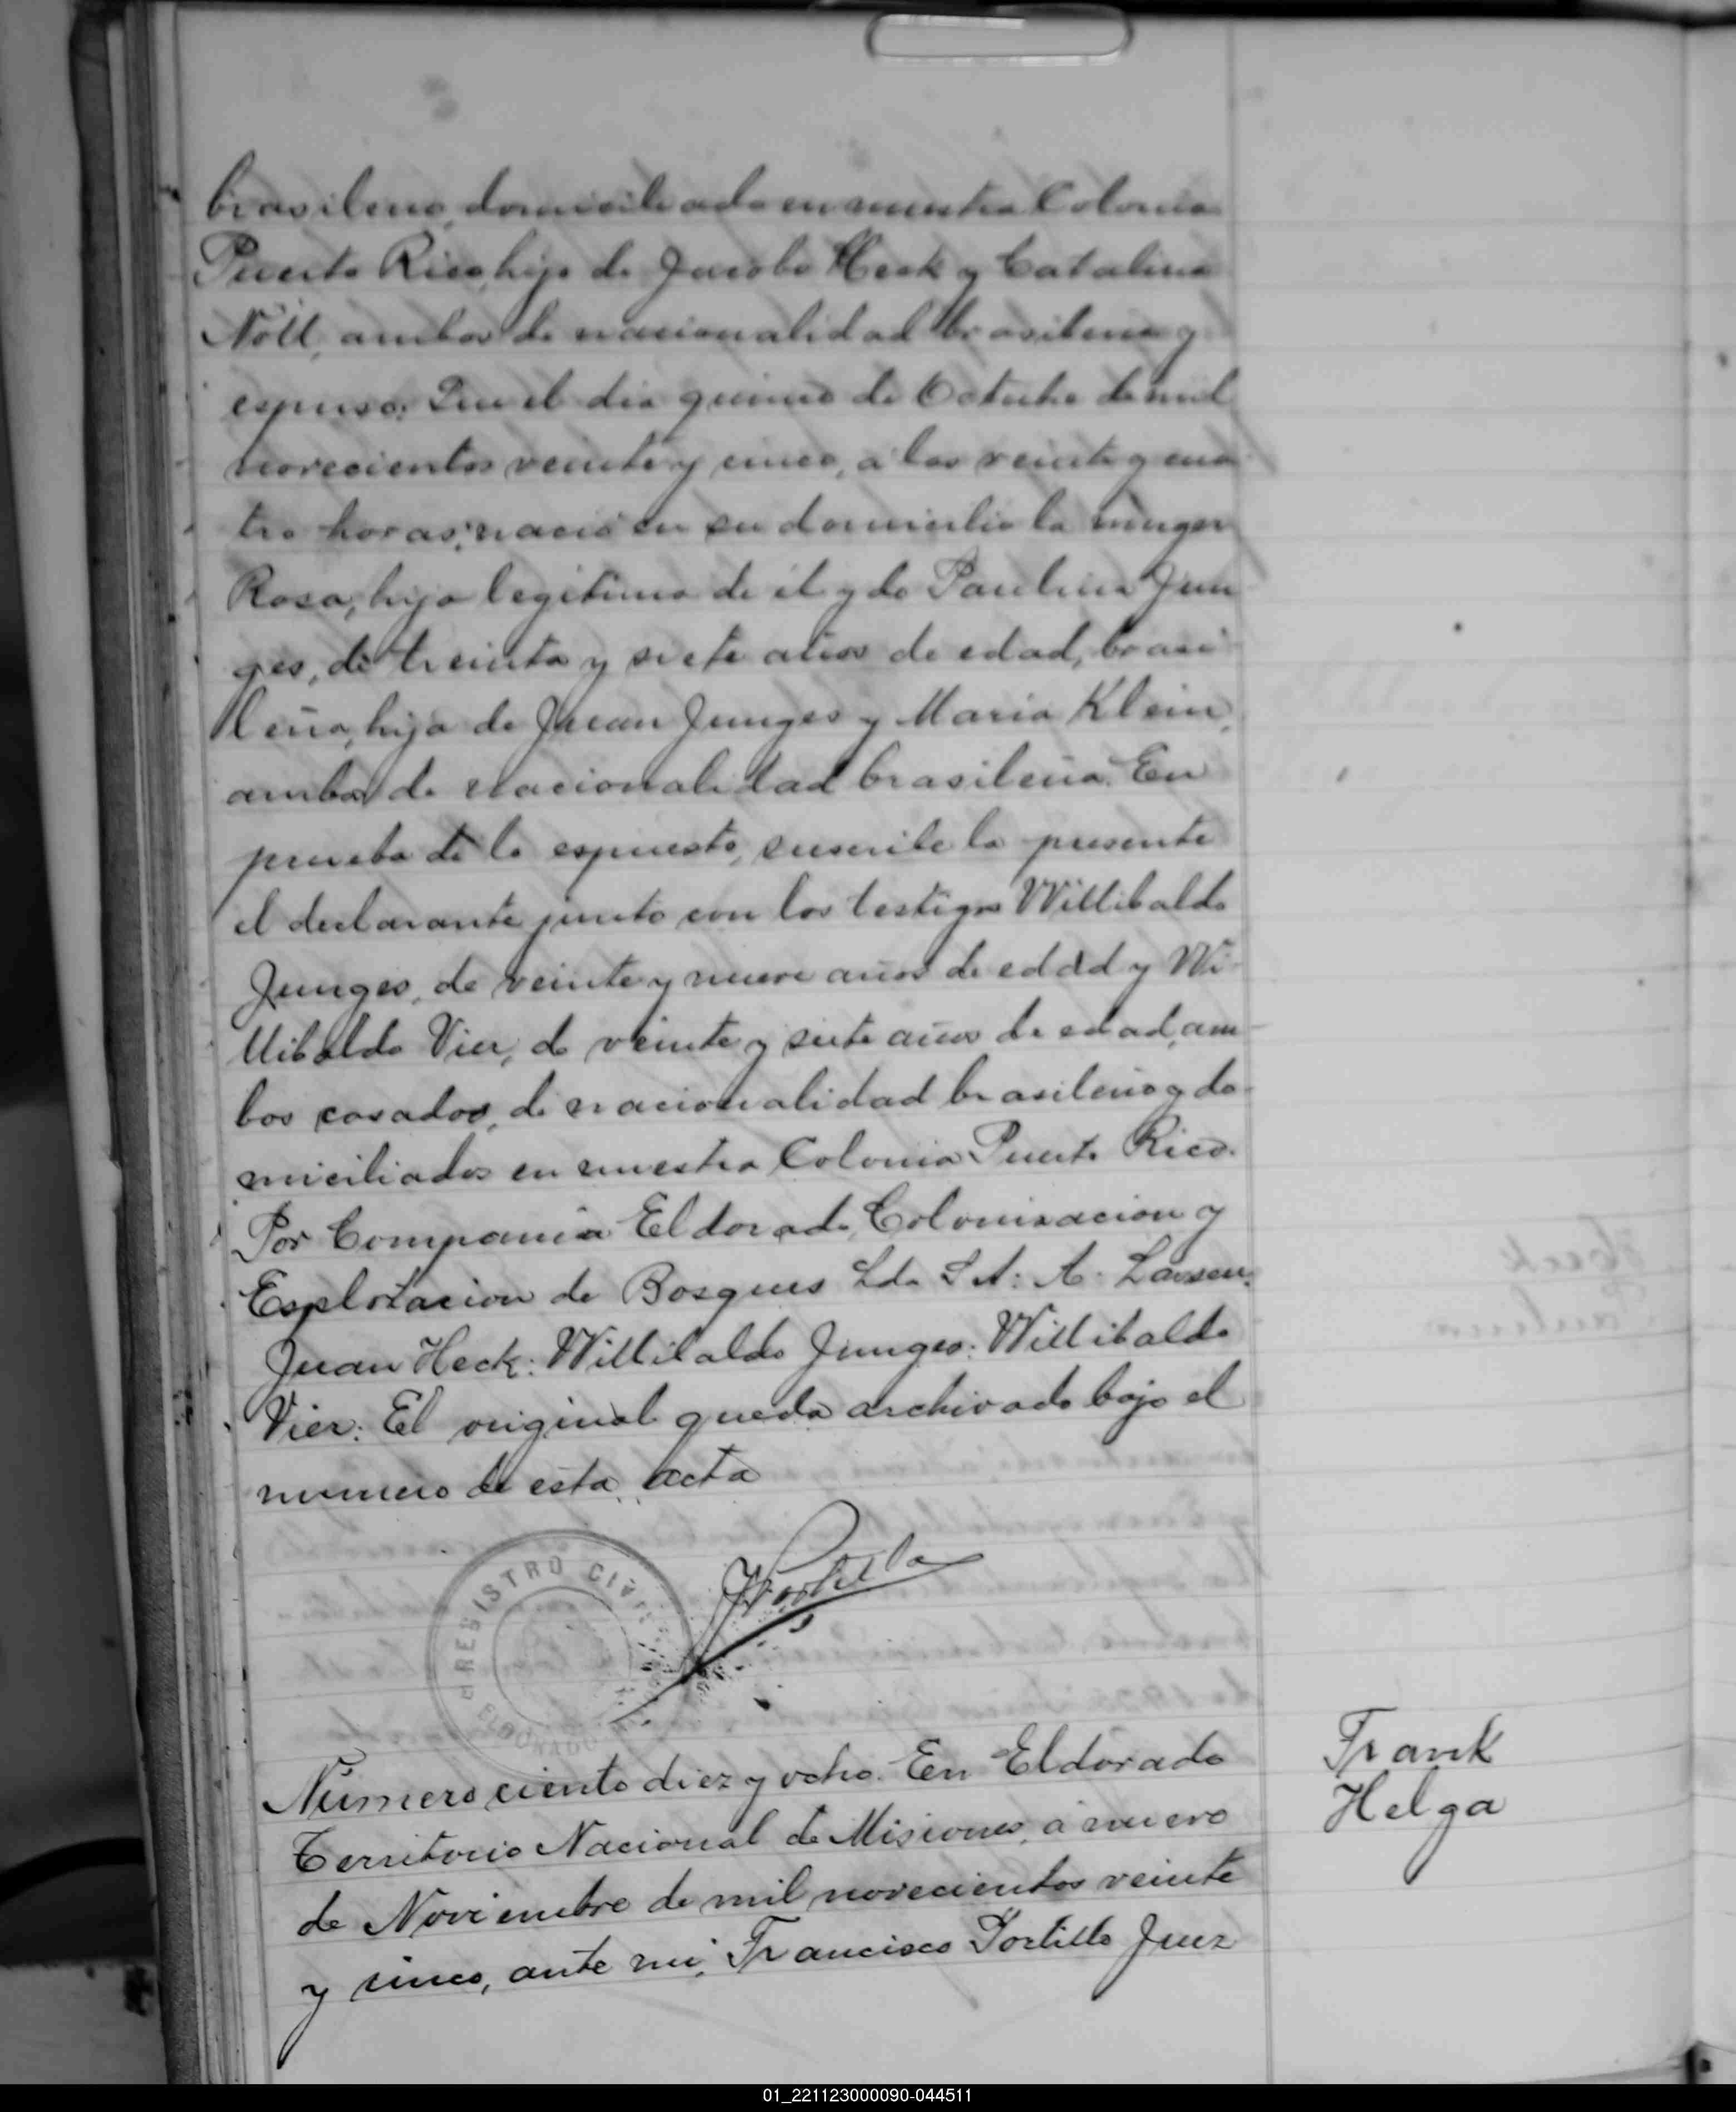 brasileno, domiciliado en nuestra Colonia
Puerto Rico, hijo de Jacobo Heck y Catalina
Nöll, ambos de nacionalidad brasilena y
espuso: Que el dia quince de Octubre de mil
novecientos veinte y cinco, a las veinte y cua
tro horas, nació en su domicilio la munger
Rosa, hija legitima de él y de Paulina Jun
ges, de treinta y siete años de edad, brasi-
leña, hija de Juan Junges y Maria Klein,
ambos de nacionalidad brasileña. En
prueba de lo espuesto, suscribe la presente
el declarante junto con los testigos Willibaldo
Junges, de veinte y nueve años de edad y Wi-
llibaldo Vier, de veinte y siete años de edad, am-
bos casados, de nacionalidad brasileña y do-
miciliados en nuestra Colonia Puerto Rico.
Por Compania Eldorado, Colonizacion y
Esplotacion de Bosques Lda S. A: A. Larsen:
Juan Heck: Willibaldo Junges: Willibaldo
Vier: El original queda archivado bajo el
numero de esta acta
FPortillo
REGISTRO CIVIL
ELDORADO
Número ciento diez y ocho. En Eldorado
Territorio Nacional de Misiones, a nueve
de Noviembre de mil novecientos veinte
y cinco, ante mi, Francisco Portillo Juez
Frank
Helga
01_221123000090-044511